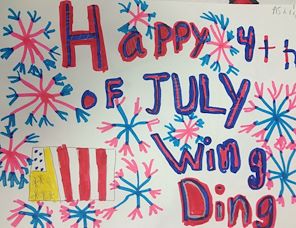 Happy 4th
of JULY
Wing
Ding